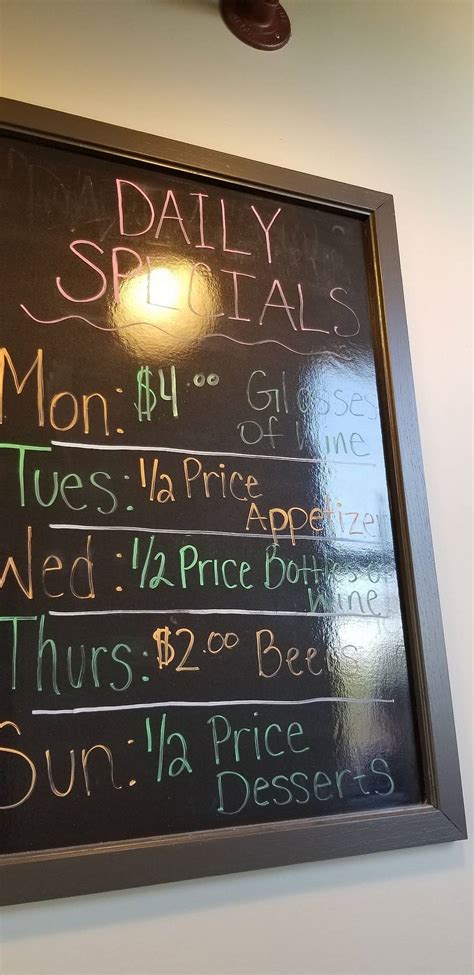 DAILY
SPECIALS
Mon: $4.00 Glasses
of Wine
Tues: 1/2 Price
Appetizer
Wed: 1/2 Price Bottles of
Wine
Thurs: $2.00 Beers
Sun: 1/2 Price
Desserts